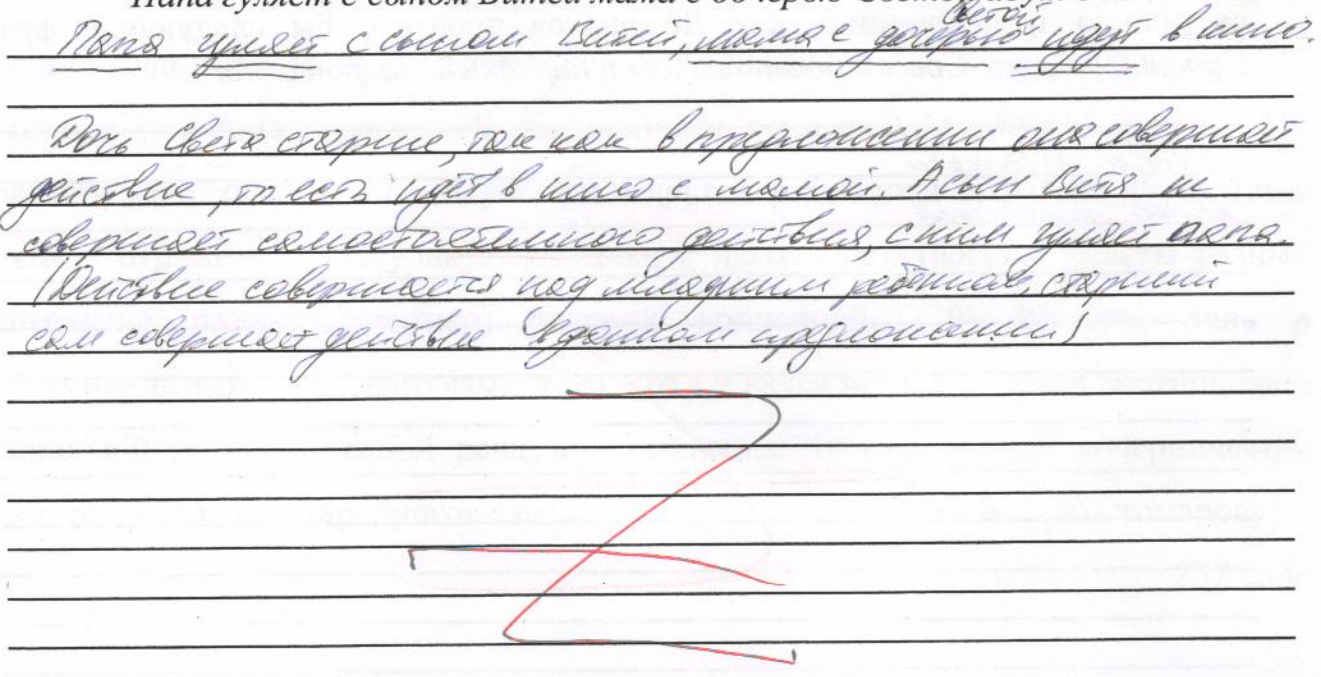 Папа гуляет с сыном Витей мама с дочерью Светой идут в кино.
Светой
Папа гуляет с сыном Витей, мама с дочерью идут в кино.
Дочь Света старше, так как в предложении она совершает
действие, то есть идёт в кино с мамой. А сын Витя не
совершает самостоятельного действия, с ним гуляет папа.
(Действие совершается над младшим ребёнком, старший
сам совершает действие в данном предложении)